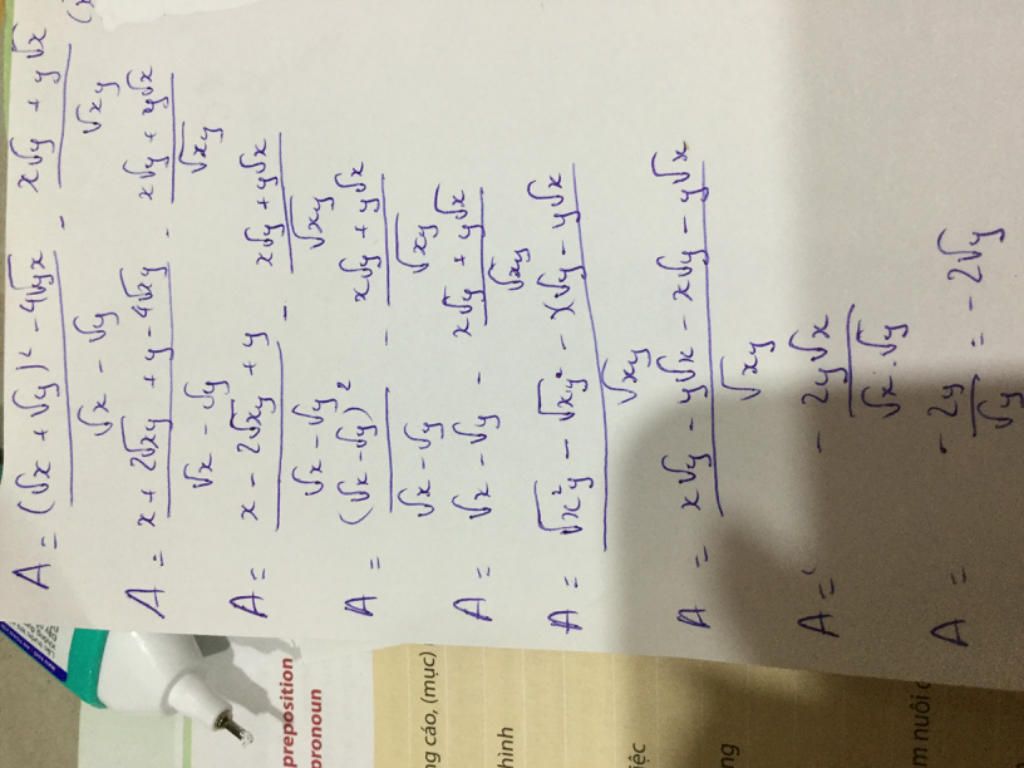 A = (√x + √y)² - 4√yx / √x - √y - x√y + y√x / √xy
A = x + 2√xy + y - 4√xy / √x - √y - x√y + y√x / √xy
A = x - 2√xy + y / √x - √y - x√y + y√x / √xy
A = (√x - √y)² / √x - √y - x√y + y√x / √xy
A = √x - √y - x√y + y√x / √xy
A = √x²y - √xy² - x√y - y√x / √xy
A = x√y - y√x - x√y - y√x / √xy
A = - 2y√x / √x . √y
A = - 2y / √y = - 2√y
preposition
pronoun
ng cáo, (mục)
hình
iệc
ng
m nuôi